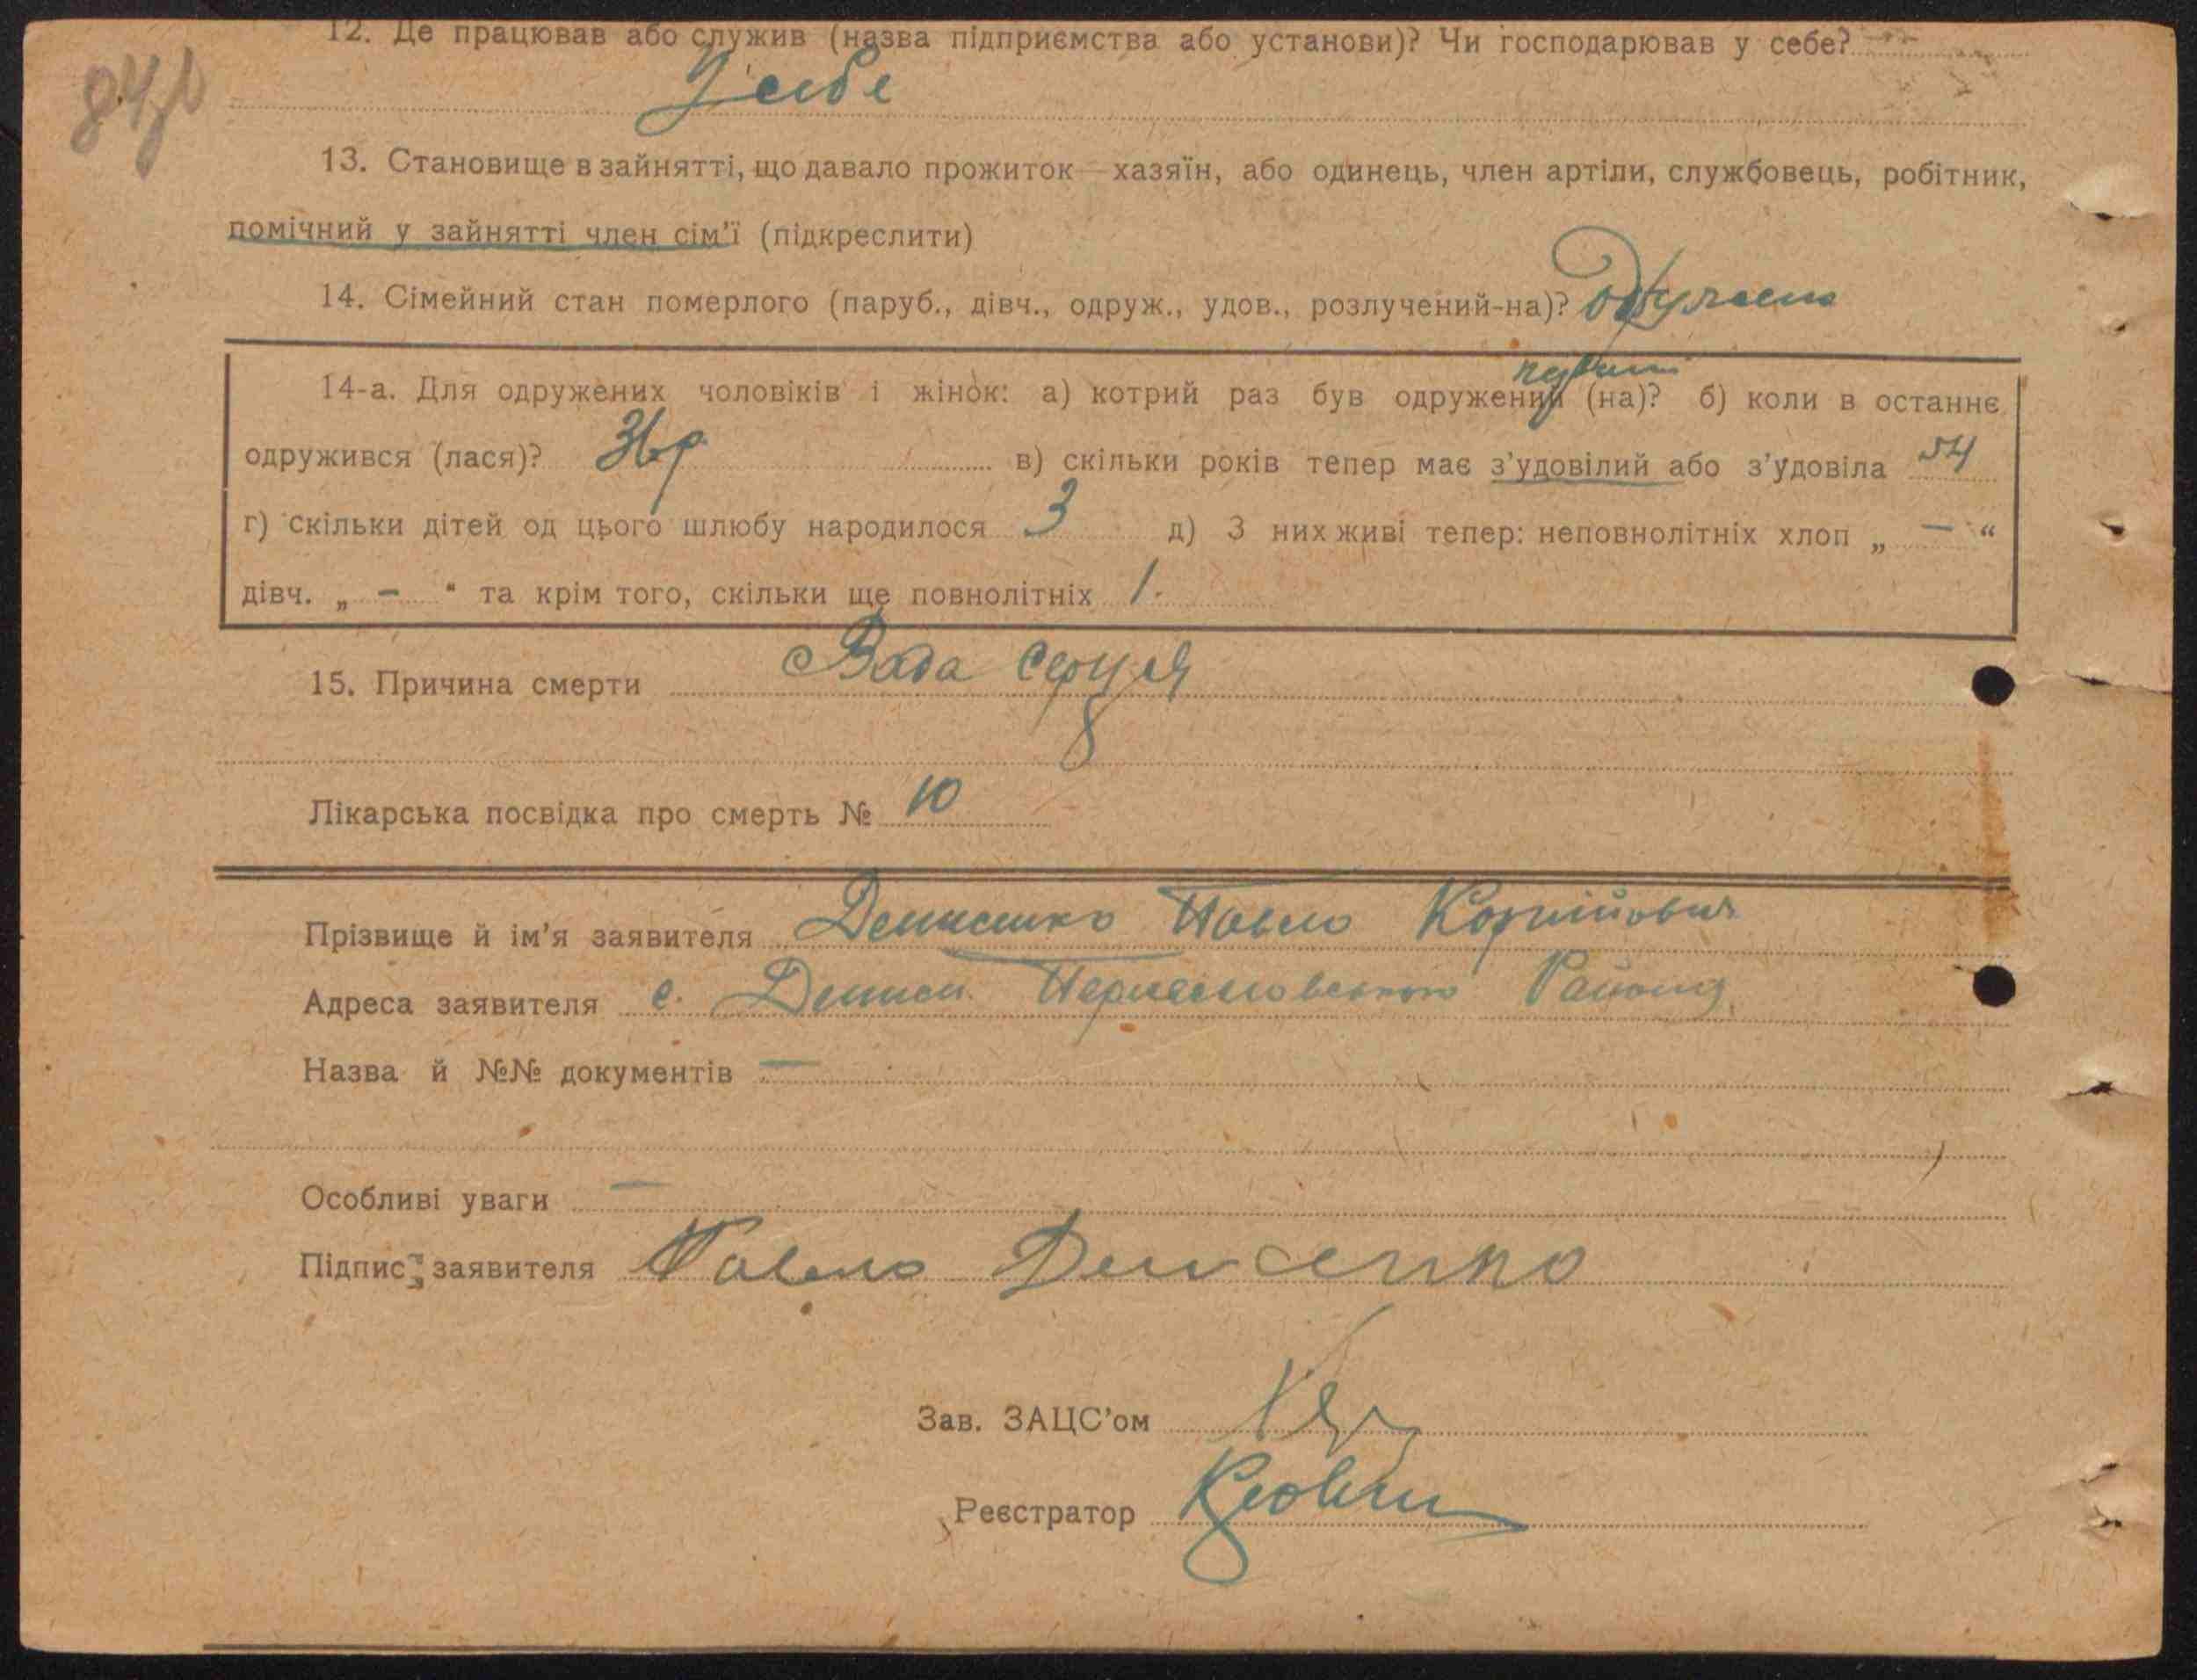 12. Де працював або служив (назва підприємства або установи)? Чи господарював у себе?
У себе
13. Становище в зайнятті, що давало прожиток — хазяїн, або одинець, член артіли, службовець, робітник,
помічний у зайнятті член сім'ї (підкреслити)
14. Сімейний стан померлого (паруб., дівч., одруж., удов., розлучений-на)?
14-а. Для одружених чоловіків і жінок: а) котрий раз був одружений (на)? б) коли в останнє
одружився (лася)? в) скільки років тепер має з'удовілий або з'удовіла 54
г) скільки дітей од цього шлюбу народилося 3 д) З них живі тепер: неповнолітніх хлоп „ — “
дівч. „ — “ та крім того, скільки ще повнолітніх 1.
15. Причина смерти Вада серця
Лікарська посвідка про смерть № 10
Прізвище й ім'я заявителя Денисенко Павло Корнійович
Адреса заявителя с. Дениси Района
Назва й №№ документів —
Особливі уваги —
Підпис заявителя Павло Денисенко
Зав. ЗАЦС'ом
Реєстратор